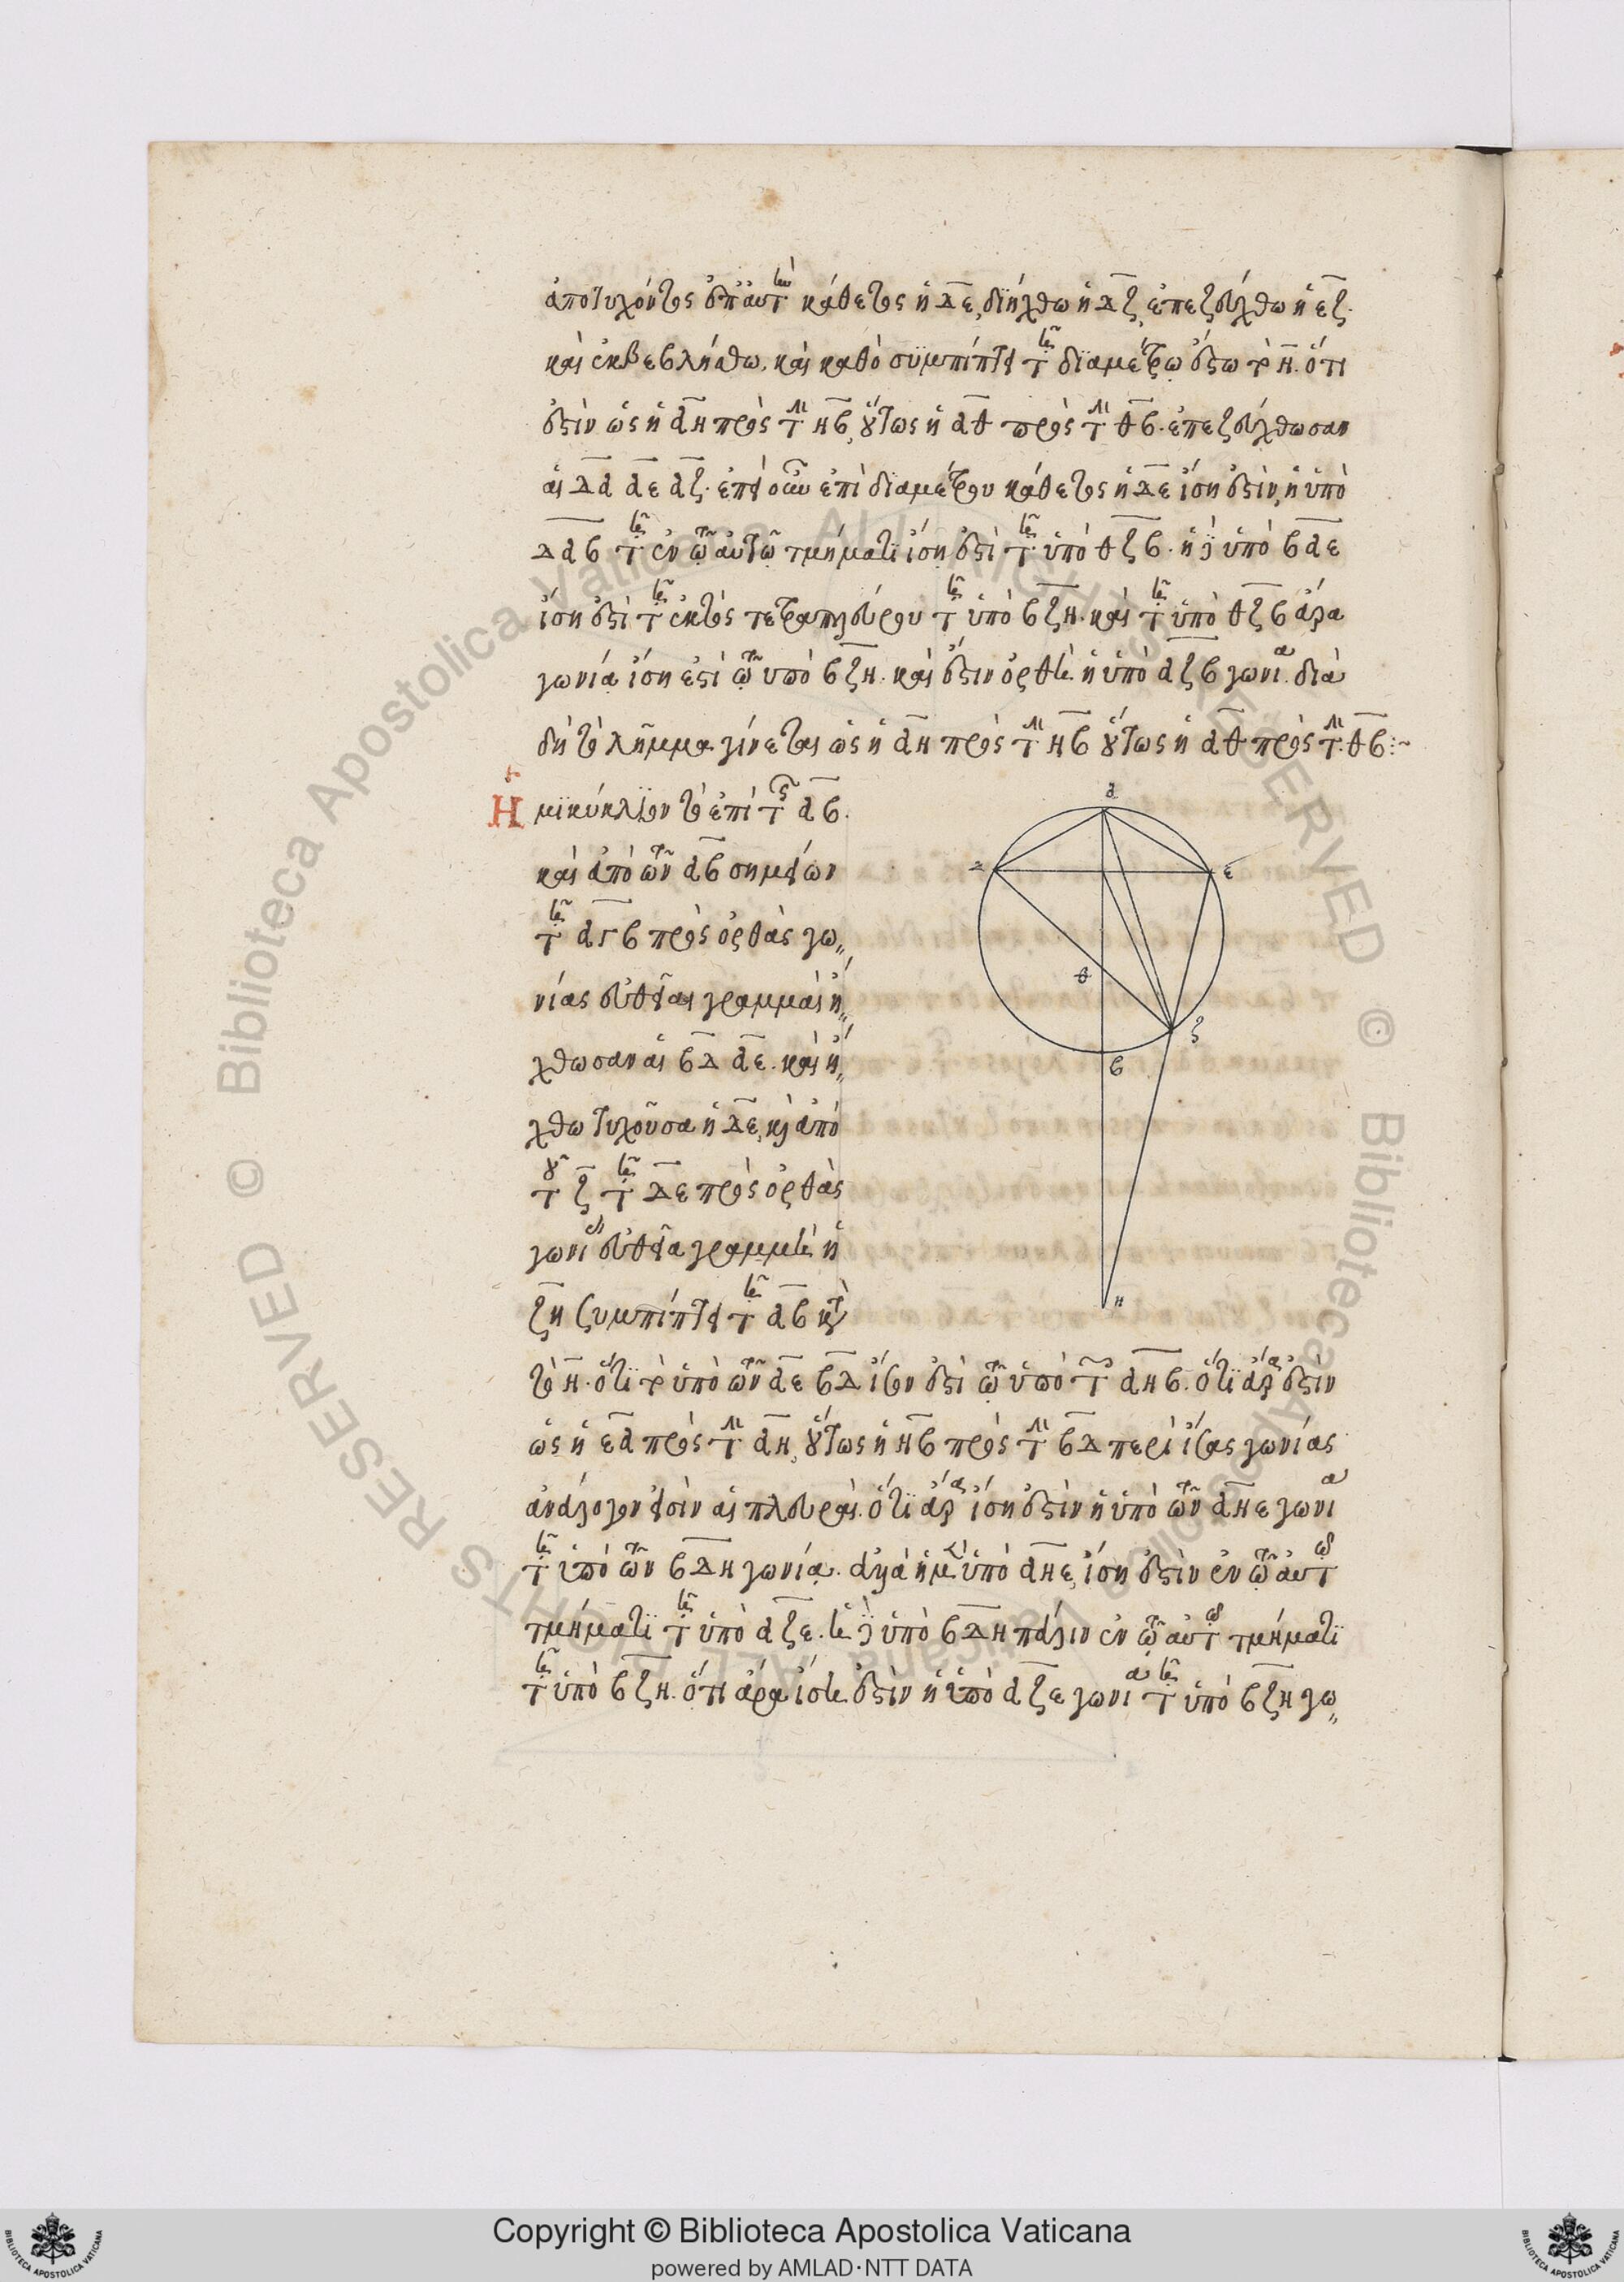 ἀπὸ τυχόντος ἐπ' αὐτὴν κάθετος ἡ δε, διήχθω ἡ δζ, ἐπεζεύχθω ἡ εζ.
καὶ ἐκβεβλήσθω, καὶ καθὸ συμπίπτει τῇ διαμέτρῳ ἔστω τὸ η. ὅτι
ἐστὶν ὡς ἡ αη πρὸς τὴν ηβ, οὕτως ἡ αθ πρὸς τὴν θβ. ἐπεζεύχθωσαν
αἱ δα αε αζ. ἐπεὶ οὖν ἐπὶ διαμέτρου κάθετος ἡ δε ἴση ἐστὶν, ἡ ὑπὸ
δαβ τῇ ἐν τῷ αὐτῷ τμήματι ἴση ἐστὶ τῇ ὑπὸ θζβ. ἡ δὲ ὑπὸ βαε
ἴση ἐστὶ τῇ ἐκτὸς τετραπλεύρου τῇ ὑπὸ βζη. καὶ τῇ ὑπὸ θζβ ἄρα
γωνίᾳ ἴση ἐστὶ τῷ ὑπὸ βζη. καὶ ἔστιν ὀρθὴ ἡ ὑπὸ αζβ γωνία. διὰ
δὴ τὸ λῆμμα γίνεται ὡς ἡ αη πρὸς τὴν ηβ οὕτως ἡ αθ πρὸς τὴν θβ:~
Ἡμικύκλιον τὸ ἐπὶ τῆς αβ.
καὶ ἀπὸ τῶν αβ σημείων
τῇ αγβ πρὸς ὀρθὰς γω
νίας εὐθεῖαι γραμμαὶ ἤ
χθωσαν αἱ βδ αε. καὶ ἤ
χθω τυχοῦσα ἡ δε, καὶ ἀπὸ
τοῦ ζ τῇ δε πρὸς ὀρθὰς
γωνίας εὐθεῖα γραμμὴ ἡ
ζη συμπίπτει τῇ αβ κατὰ
τὸ η. ὅτι τὸ ὑπὸ τῶν αε βδ ἴσον ἐστὶ τῷ ὑπὸ τῶν αηβ. ὅτι ἄρα ἐστὶν
ὡς ἡ εα πρὸς τὴν αη, οὕτως ἡ ηβ πρὸς τὴν βδ περὶ ἴσας γωνίας
ἀνάλογόν εἰσιν αἱ πλευραί. ὅτι ἄρα ἴση ἐστὶν ἡ ὑπὸ τῶν αηε γωνία
τῇ ὑπὸ τῶν βδη γωνίᾳ. ἀλλὰ ἡ μὲν ὑπὸ αηε, ἴση ἐστὶν ἐν τῷ αὐτῷ
τμήματι τῇ ὑπὸ αζε. ἡ δὲ ὑπὸ βδη πάλιν ἐν τῷ αὐτῷ τμήματι
τῇ ὑπὸ βζη. ὅτι ἄρα ἴση ἐστὶν ἡ ὑπὸ αζε γωνία τῇ ὑπὸ βζη γω
α
δ
ε
θ
ζ
β
η
© Biblioteca Apostolica Vaticana ALL RIGHTS RESERVED
Copyright © Biblioteca Apostolica Vaticana
powered by AMLAD·NTT DATA